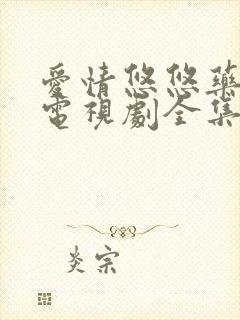 愛情悠悠藥
電視劇全集
炎宗